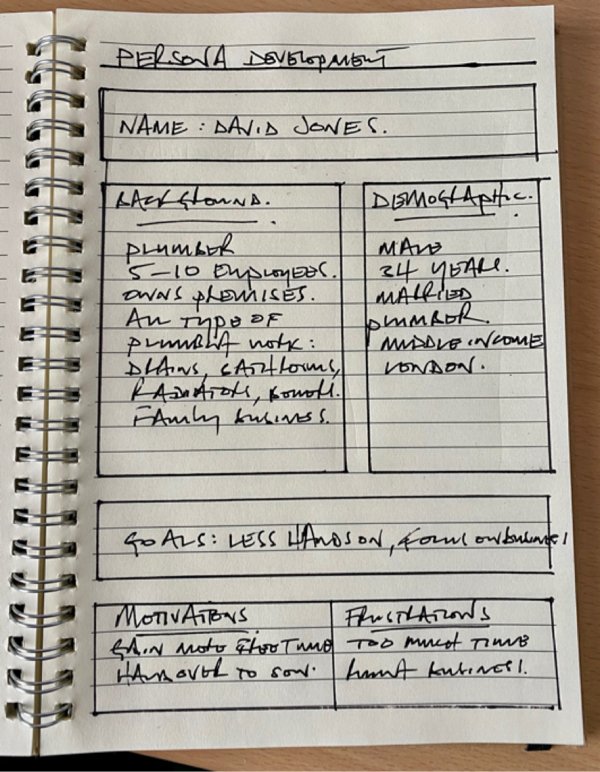 PERSONA DEVELOPMENT
NAME : DAVID JONES.
BACKGROUND.
PLUMBER
5-10 EMPLOYEES.
OWNS PREMISES.
ALL TYPE OF
PLUMBING WORK:
DRAINS, BATHROOMS,
RADIATORS,
FAMILY BUSINESS.
DEMOGRAPHIC.
MALE
34 YEARS.
MARRIED
PLUMBER.
MIDDLE INCOME
LONDON.
GOALS: LESS HANDS ON, FOCUS ON BUSINESS
MOTIVATIONS
GAIN MORE FREE TIME
HANDOVER TO SON.
FRUSTRATIONS
TOO MUCH TIME
BUSINESS.